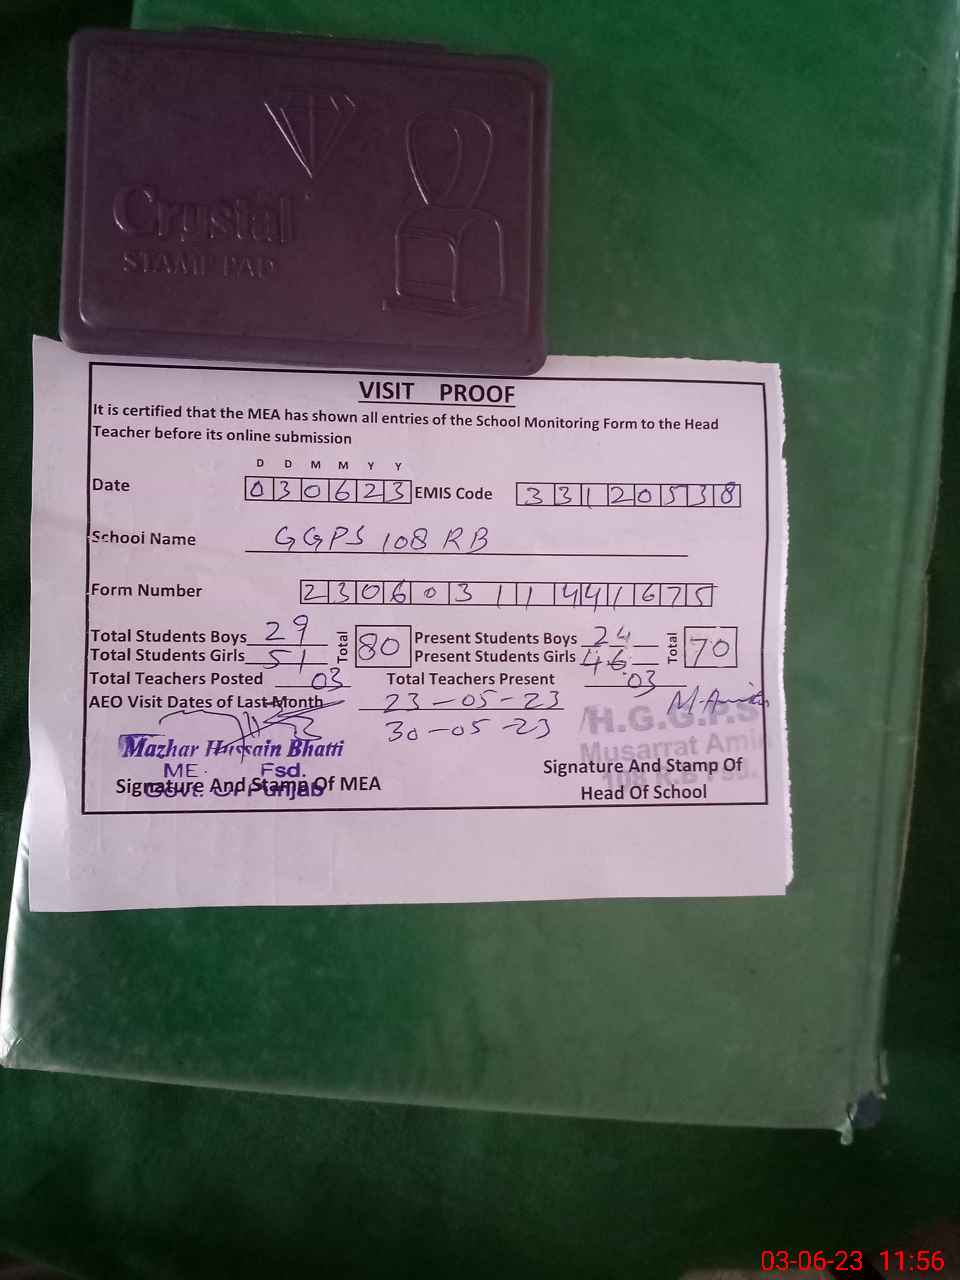 Crystal
STAMP PAD
VISIT PROOF
It is certified that the MEA has shown all entries of the School Monitoring Form to the Head
Teacher before its online submission
D D M M Y Y
Date 030623 EMIS Code 33120538
School Name GGPS 108 RB
Form Number 23060311441675
Total Students Boys 29 Total 80 Present Students Boys 24 Total 70
Total Students Girls 51 Present Students Girls 46
Total Teachers Posted 03 Total Teachers Present 03
AEO Visit Dates of Last Month 23-05-23
30-05-23
M. Amin
H.G.G.P.S
Mazhar Hussain Bhatti
Musarrat Amin
ME. Fsd.
108 R.B Fsd.
Govt. Of Punjab
Signature And Stamp Of MEA
Signature And Stamp Of
Head Of School
03-06-23 11:56